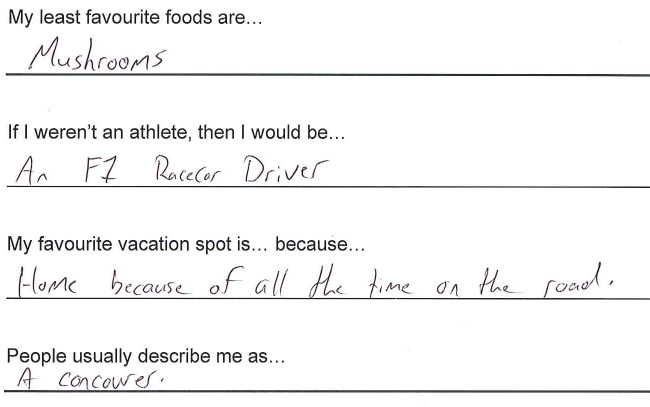 My least favourite foods are…
Mushrooms
If I weren't an athlete, then I would be…
An F1 Racecar Driver
My favourite vacation spot is… because…
Home because of all the time on the road.
People usually describe me as…
A concourer.